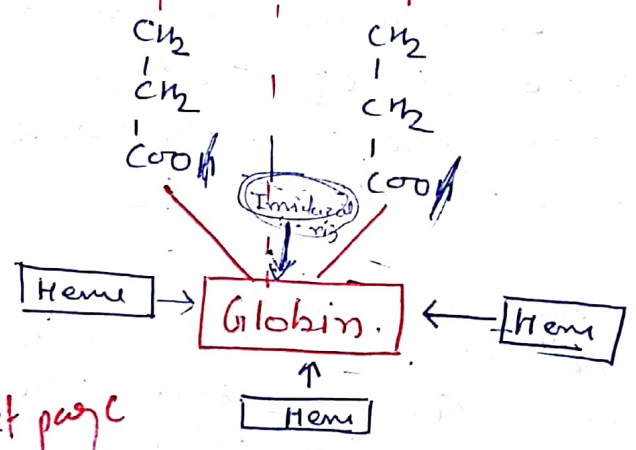 CH2 CH2
CH2 CH2
COOH COOH
Imidazol
rig
Heme Globin. Hem
Hem
t page